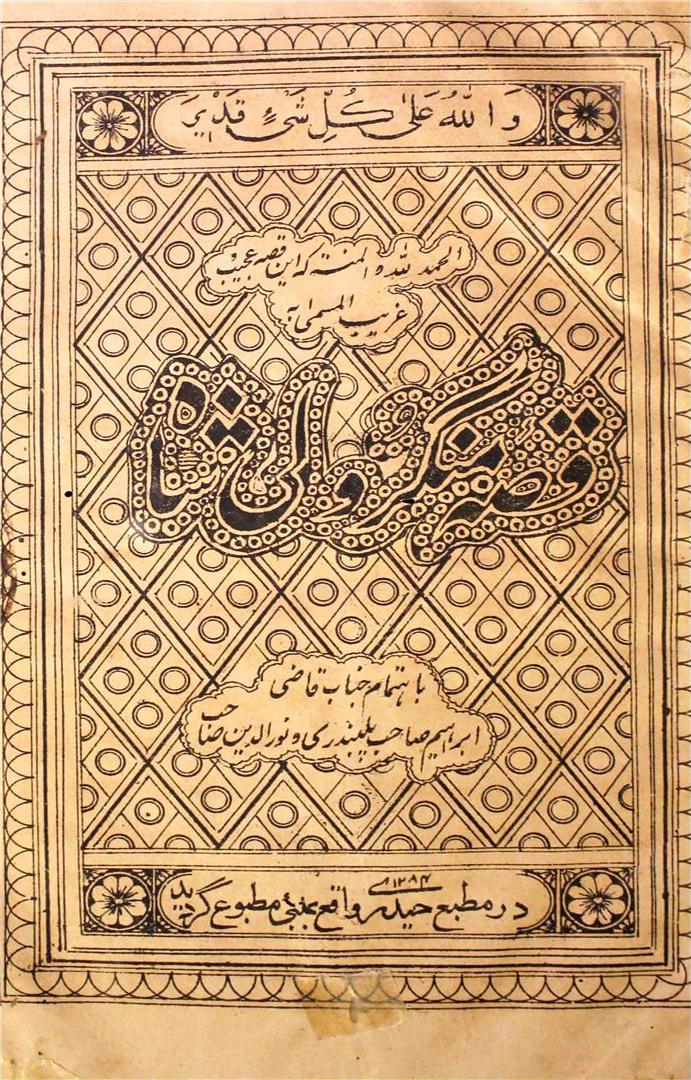 وَاللهُ عَلیٰ كُلِّ شَیْءٍ قَدِیْرَ
الحمد للہ والمنتہ کہ این قصہ عجیب و
غریب المسمی بہ
قصہ والی شاہ
باہتمام جناب قاضی
ابراہیم صاحب پلبندری و نورالدین صاحب
۱۲۸۴
در مطبع حیدری واقع بمبئی مطبوع گردید